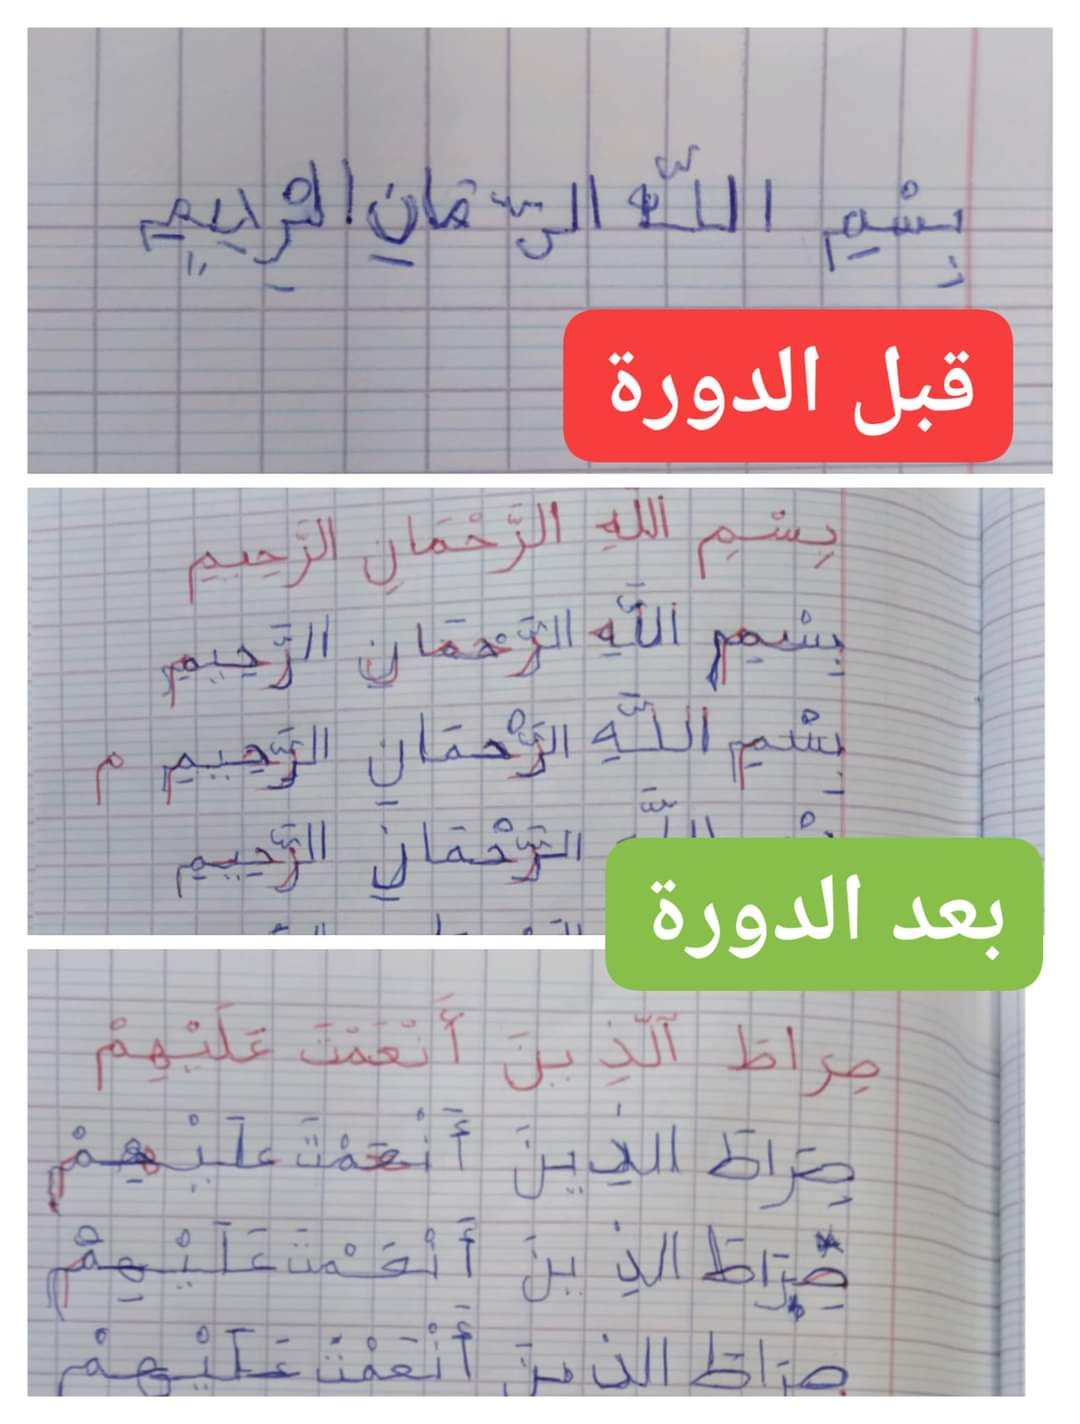 بِسْمِ اللَّهِ الرّحمَانِ الرحِيمِ
قبل الدورة
بِسْمِ اللَّهِ الرَّحْمَانِ الرَّحِيمِ
بِسْمِ اللَّهِ الرَّحْمَانِ الرَّحِيمِ
بِسْمِ اللَّهِ الرَّحْمَانِ الرَّحِيمِ م
الرَّحْمَانِ الرَّحِيمِ
بعد الدورة
صِرَاطَ ٱلَّذِينَ أَنْعَمْتَ عَلَيْهِمْ
صِرَاطَ الذِينَ أَنْعَمْتَ عَلَيْهِمْ
صِرَاطَ الذِينَ أَنْعَمْتَ عَلَيْهِمْ
صِرَاطَ الذينَ أَنْعَمْتَ عَلَيْهِمْ